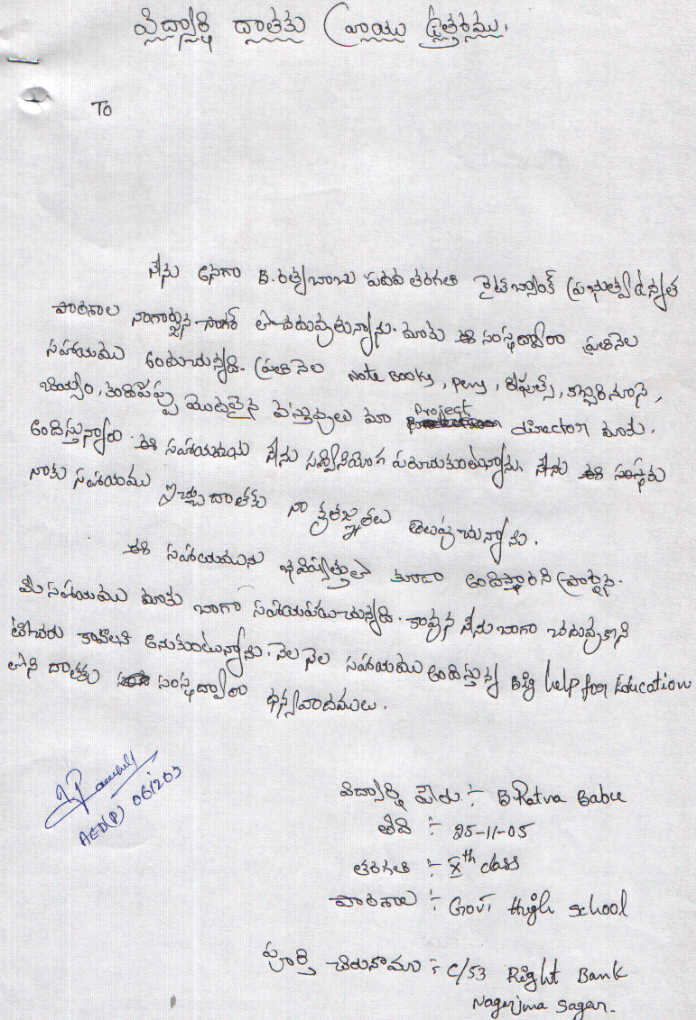 విద్యార్థి దాతకు వ్రాయు ఉత్తరము.
To
నేను అనగా B. రత్నబాబు పదవ తరగతి రైట్ బ్యాంక్ ప్రభుత్వ ఉన్నత
పాఠశాల నాగార్జున సాగర్ లో చదువుతున్నాను. మాకు ఈ సంస్థ ద్వారా ప్రతినెల
సహాయము అందుచున్నది. ప్రతి నెల Note Books, pens, రీఫుల్స్, కొబ్బరినూనె,
బియ్యం, కందిపప్పు మొదలైన వస్తువులు మా Project director మాకు.
అందిస్తున్నారు. ఈ సహాయమును నేను సద్వినియోగ పరుచుకుంటున్నాను. నేను ఈ సంస్థకు
నాకు సహాయము ఇచ్చు దాతకు నా కృతజ్ఞతలు తెలుపుచున్నాను.
ఈ సహాయమును భవిష్యత్తులో కూడా అందిస్తారని ప్రార్థన.
మీ సహాయము మాకు బాగా సహాయపడుచున్నది. కావున నేను బాగా చదువుకొని
టీచరు కావాలని అనుకుంటున్నాను. నెల నెల సహాయము అందిస్తున్న help for Education
లోని దాతకు సంస్థ ద్వారా ధన్యవాదములు.
AED(P) 061203
విద్యార్థి పేరు :- B Ratna Babu
తేది :- 25-11-05
తరగతి :- Xth class
పాఠశాల :- Govt High school
పూర్తి చిరునామా :- C/53 Right Bank
Nagerjuna Sagar.